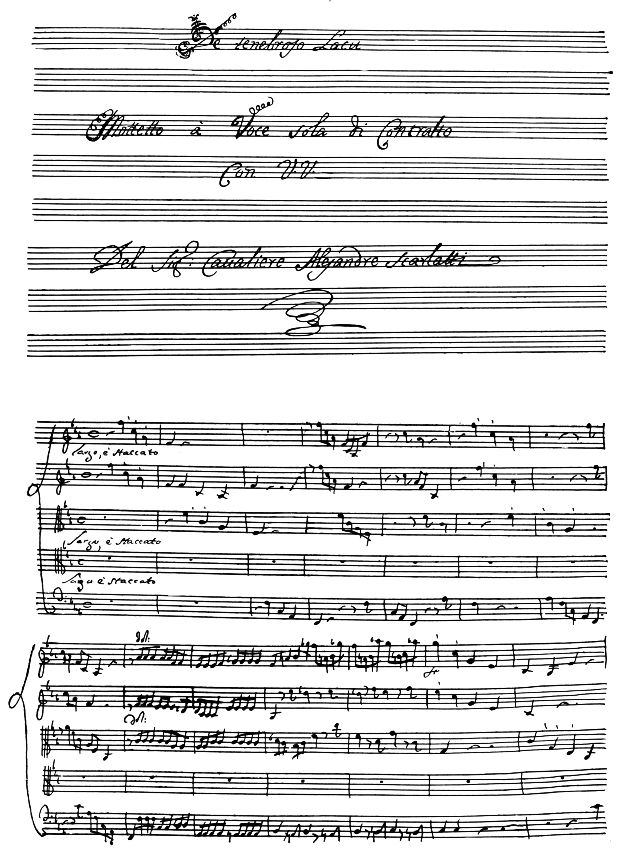 De tenebroso Lacu
Mottetto à Voce sola di Contralto
Con V.V.
Del Sig.r Cavaliere Alesandro Scarlatti
Largo, è staccato
Largo, è staccato
Largo è staccato